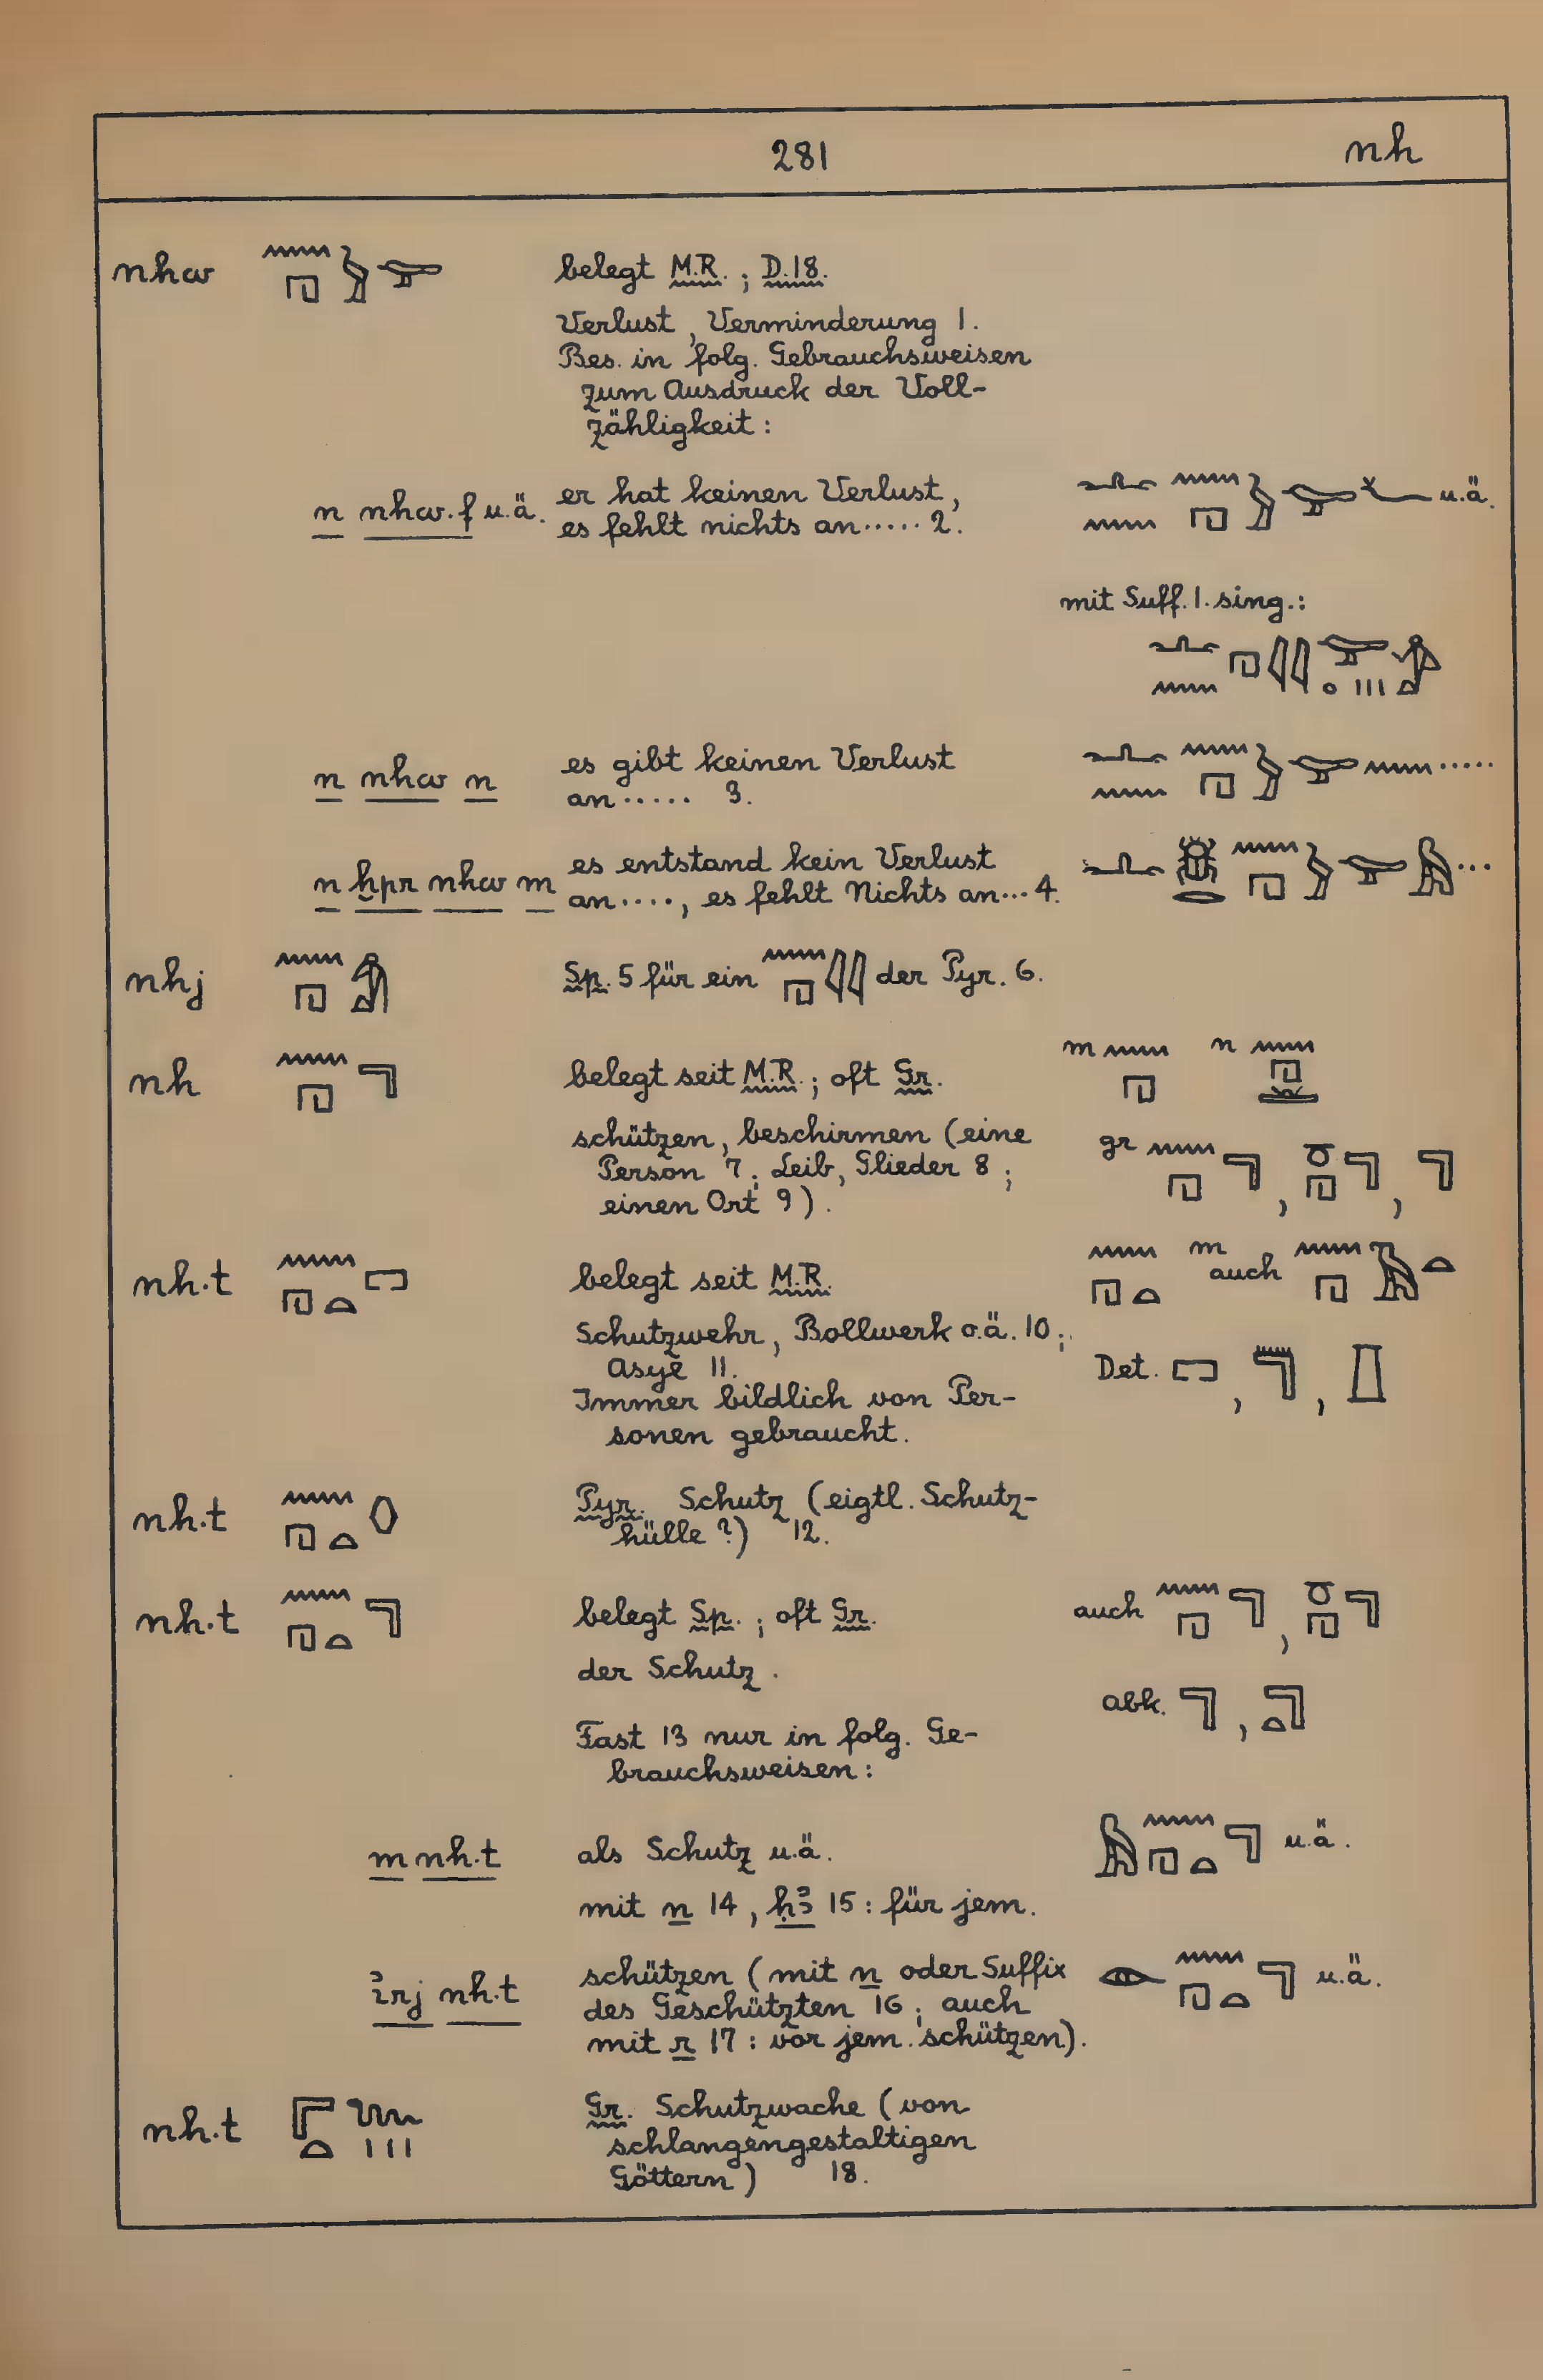 281 nh
nhw 𓈖𓉔𓅱𓅪 belegt M.R.; D.18.
Verlust, Verminderung 1.
Bes. in folg. Gebrauchsweisen
zum Ausdruck der Voll-
zähligkeit:
n nhw.f u.ä. er hat keinen Verlust, u.ä.
es fehlt nichts an ..... 2.
mit Suff. 1. sing.:
n nhw n es gibt keinen Verlust
an ..... 3.
n ḫpr nhw m es entstand kein Verlust
an ...., es fehlt Nichts an ... 4.
nhj Sp. 5 für ein 𓈖𓉔𓇌 der Pyr. 6.
nh 𓈖𓉔𓊹 belegt seit M.R.; oft Gr. m n
schützen, beschirmen (eine gr
Person 7; Leib, Glieder 8;
einen Ort 9).
nh.t 𓈖𓉔𓏏𓉐 belegt seit M.R. m auch
Schutzwehr, Bollwerk o.ä. 10;
Asyl 11. Det.
Immer bildlich von Per-
sonen gebraucht.
nh.t Pyr. Schutz (eigtl. Schutz-
hülle?) 12.
nh.t belegt Sp.; oft Gr. auch
der Schutz.
abk.
Fast 13 nur in folg. Ge-
brauchsweisen:
m nh.t als Schutz u.ä. u.ä.
mit n 14, ḥꜣ 15: für jem.
ı͗rj nh.t schützen (mit n oder Suffix u.ä.
des Geschützten 16; auch
mit r 17: vor jem. schützen).
nh.t Gr. Schutzwache (von
schlangengestaltigen
Göttern) 18.